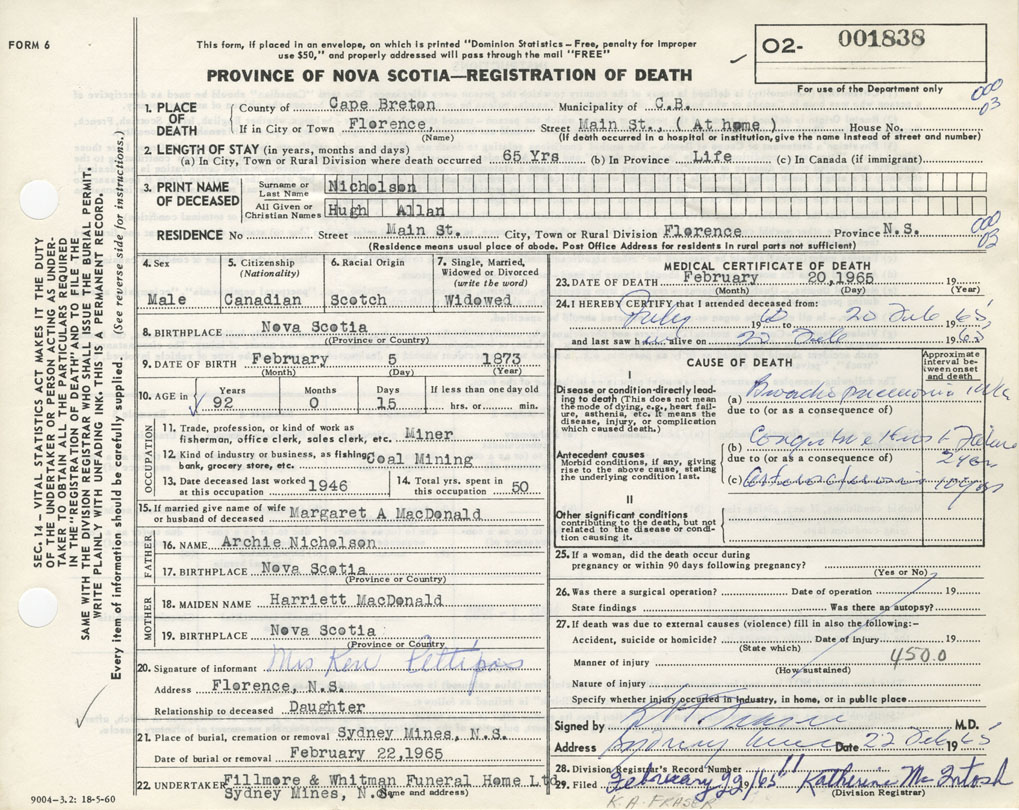 FORM 6
This form, if placed in an envelope, on which is printed "Dominion Statistics – Free, penalty for improper
use $50," and properly addressed will pass through the mail "FREE"
PROVINCE OF NOVA SCOTIA—REGISTRATION OF DEATH
O2- 001838
For use of the Department only
000
03
1. PLACE OF DEATH
County of Cape Breton Municipality of C.B.
If in City or Town Florence, Street Main St., ( At home ) House No.
(Name) (If death occurred in a hospital or institution, give the name instead of street and number)
2. LENGTH OF STAY (in years, months and days)
(a) In City, Town or Rural Division where death occurred 65 Yrs (b) In Province Life (c) In Canada (if immigrant)
3. PRINT NAME OF DECEASED
Surname or Last Name Nicholson
All Given or Christian Names Hugh Allan
RESIDENCE No Street Main St. City, Town or Rural Division Florence Province N.S.
(Residence means usual place of abode. Post Office Address for residents in rural parts not sufficient)
000
03
4. Sex
Male
5. Citizenship (Nationality)
Canadian
6. Racial Origin
Scotch
7. Single, Married, Widowed or Divorced (write the word)
Widowed
8. BIRTHPLACE Nova Scotia
(Province or Country)
9. DATE OF BIRTH February 5 1873
(Month) (Day) (Year)
10. AGE in Years 92 Months 0 Days 15 If less than one day old hrs. or min.
OCCUPATION
11. Trade, profession, or kind of work as
fisherman, office clerk, sales clerk, etc. Miner
12. Kind of industry or business, as fishing,
bank, grocery store, etc. Coal Mining
13. Date deceased last worked at this occupation 1946
14. Total yrs. spent in this occupation 50
15. If married give name of wife or husband of deceased Margaret A MacDonald
FATHER
16. NAME Archie Nicholson
17. BIRTHPLACE Nova Scotia
(Province or Country)
MOTHER
18. MAIDEN NAME Harriett MacDonald
19. BIRTHPLACE Nova Scotia
(Province or Country
20. Signature of informant Mrs Ken Pettipas
Address Florence, N.S.
Relationship to deceased Daughter
21. Place of burial, cremation or removal Sydney Mines, N.S.
Date of burial or removal February 22,1965
22. UNDERTAKER Fillmore & Whitman Funeral Home Ltd
Sydney Mines, N.S.
(Name and address)
9004—3.2: 18-5-60
MEDICAL CERTIFICATE OF DEATH
23. DATE OF DEATH February 20,1965 19
(Month) (Day) (Year)
24. I HEREBY CERTIFY that I attended deceased from:
July 19 60 to 20 Feb 65
and last saw him alive on 20 Feb 1965
CAUSE OF DEATH
Approximate interval between onset and death
I
Disease or condition directly leading to death (This does not mean
the mode of dying, e.g., heart failure, asthenia, etc. It means the
disease, injury, or complication
which caused death.)
(a) Broncho pneumonia
due to (or as a consequence of)
Antecedent causes
Morbid conditions, if any, giving
rise to the above cause, stating
the underlying condition last.
(b) Congestive Heart Failure
2 yrs
due to (or as a consequence of)
(c) 10 yrs
II
Other significant conditions
contributing to the death, but not
related to the disease or condition causing it.
25. If a woman, did the death occur during
pregnancy or within 90 days following pregnancy?
(Yes or No)
26. Was there a surgical operation? Date of operation 19
State findings Was there an autopsy?
27. If death was due to external causes (violence) fill in also the following:–
Accident, suicide or homicide? Date of injury 19
(State which)
Manner of injury 450.0
(How sustained)
Nature of injury
Specify whether injury occurred in industry, in home, or in public place
Signed by K A Fraser M.D.
Address Sydney Mines Date 22 Feb 1965
28. Division Registrar's Record Number 11
29. Filed February 22/65 Katherine McIntosh
(Division Registrar)
K.A. FRASER
SEC. 14 – VITAL STATISTICS ACT MAKES IT THE DUTY
OF THE UNDERTAKER OR PERSON ACTING AS UNDER-
TAKER TO OBTAIN ALL THE PARTICULARS REQUIRED
IN THE "REGISTRATION OF DEATH" AND TO FILE THE
SAME WITH THE DIVISION REGISTRAR WHO SHALL ISSUE THE BURIAL PERMIT.
WRITE PLAINLY WITH UNFADING INK. THIS IS A PERMANENT RECORD.
Every item of information should be carefully supplied. (See reverse side for instructions.)